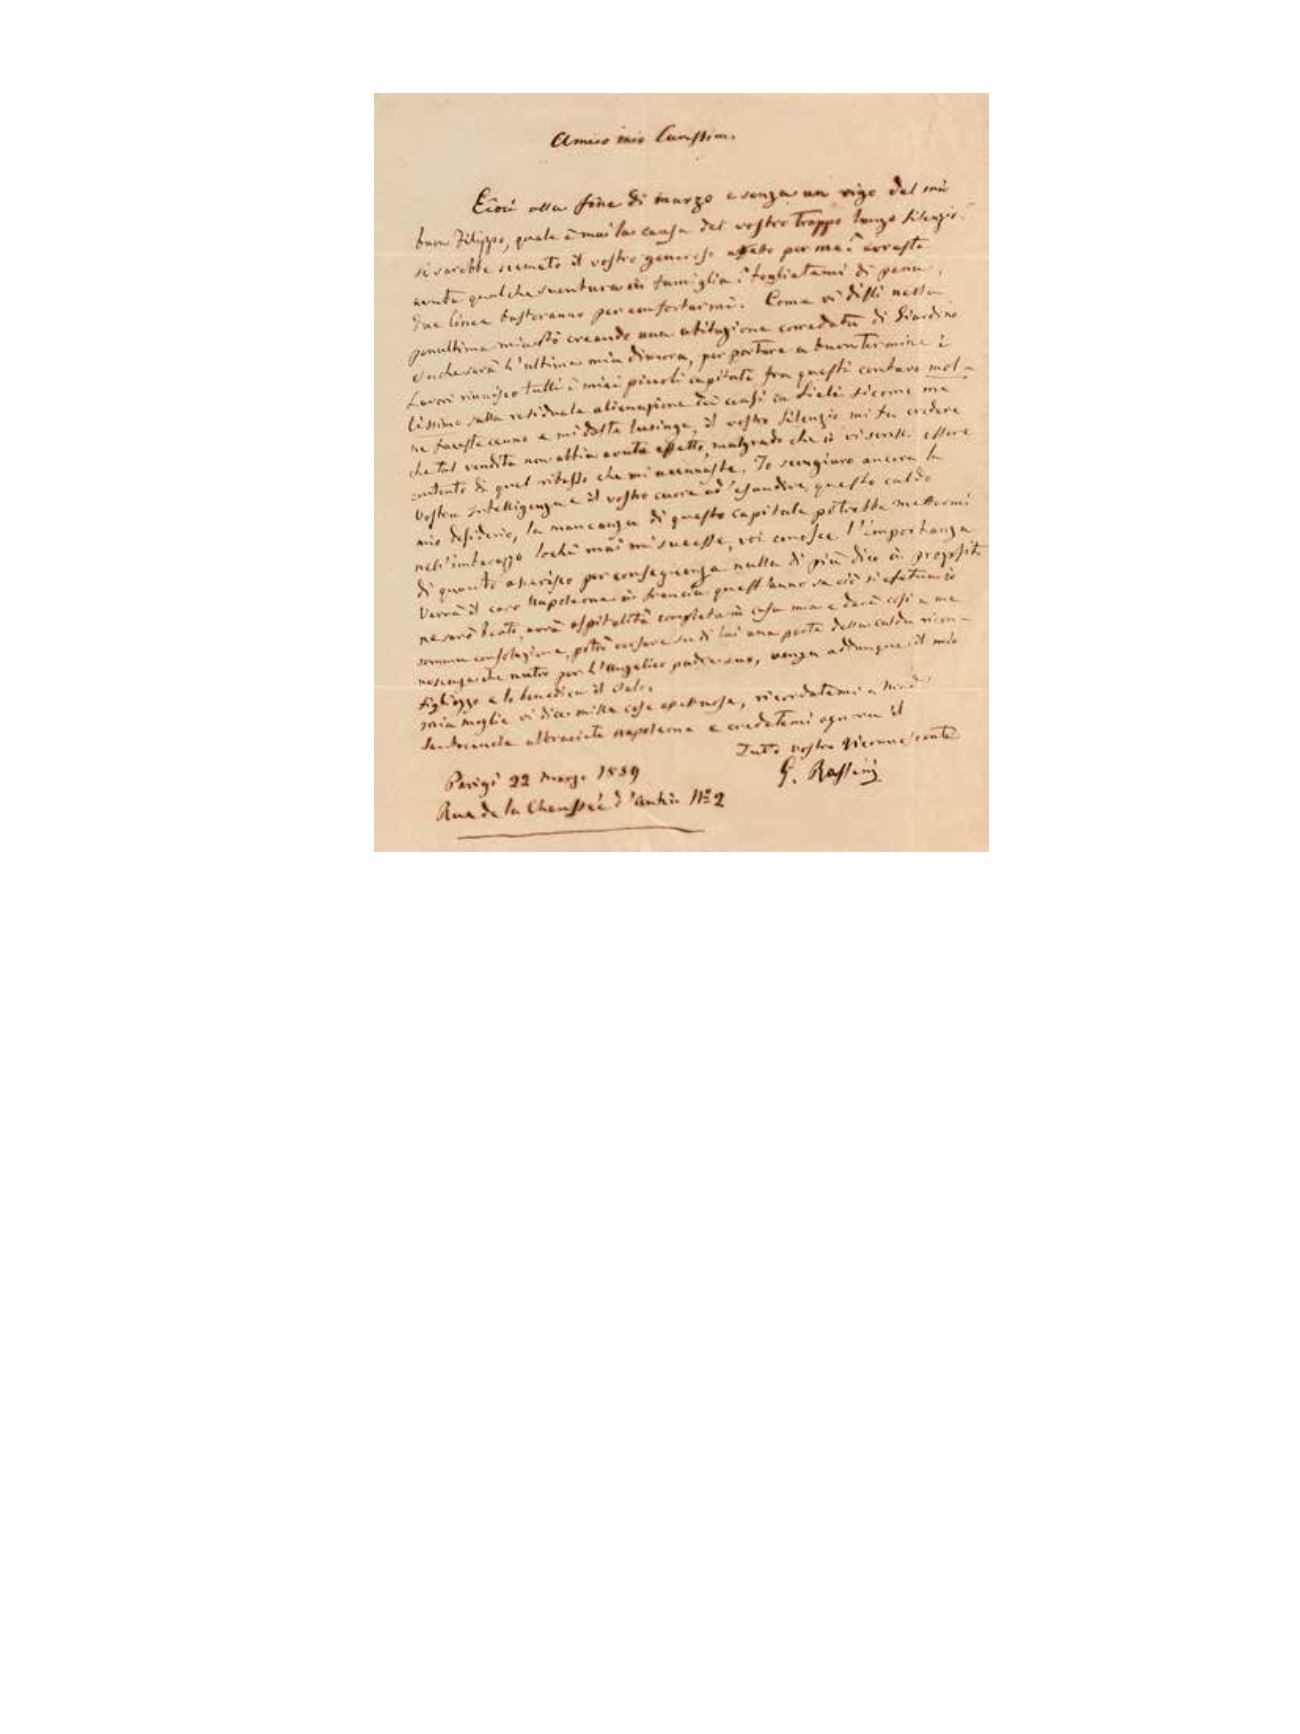 Amico mio Carissimo
Eccoci alla fine di marzo e senza un rigo del mio
buon Filippo, quale è mai la causa del vostro troppo lungo silenzio?
si sarebbe scemato il vostro generoso affetto per me? avreste
avuta qualche sventura in famiglia? toglietemi di pena,
due linee basteranno per confortarmi. Come vi dissi nella
penultima mia stò creando una abitazione corredata di Giardino
che sarà l'ultima mia dimora, per portare a buon termine i
Lavori riunisco tutti i miei piccoli capitali fra questi contavo mol-
tissimo sulla residuale alienazione dei censi in siccome me
ne faceste cenno e mi daste lusinga, il vostro silenzio mi fa credere
che tal vendita non abbia avuta effetto, malgrado che io vi scrissi essere
contento di quel ribasso che mi accennaste. Io scongiuro ancora la
vostra intelligenza e il vostro cuore ad esaudire questo caldo
mio desiderio, la mancanza di questo capitale potrebbe mettermi
nell'imbarazzo locchè mai mi successe, voi conosce l'importanza
di quanto asserisco per conseguenza nulla di più dico in proposito
Verrà il caro Napoleone in francia quest'anno? se ciò si efettua io
ne sarò beato, avrà ospitalità completa in casa mia e darà così a me
somma consolazione, potrò versare su di lui una parte della calda ricon-
noscenza che nutro per l'Angelico padre suo, venga addunque il mio
figliozzo e lo benedica il cielo.
mia moglie vi dice mille cose affettuose, ricordatemi a
abbraciate Napoleone e credetemi ognora il
Tutto vostro riconoscente
G. Rossini
Parigi 22 Marzo 1859
Rue de la Chaussée d'Antin N° 2